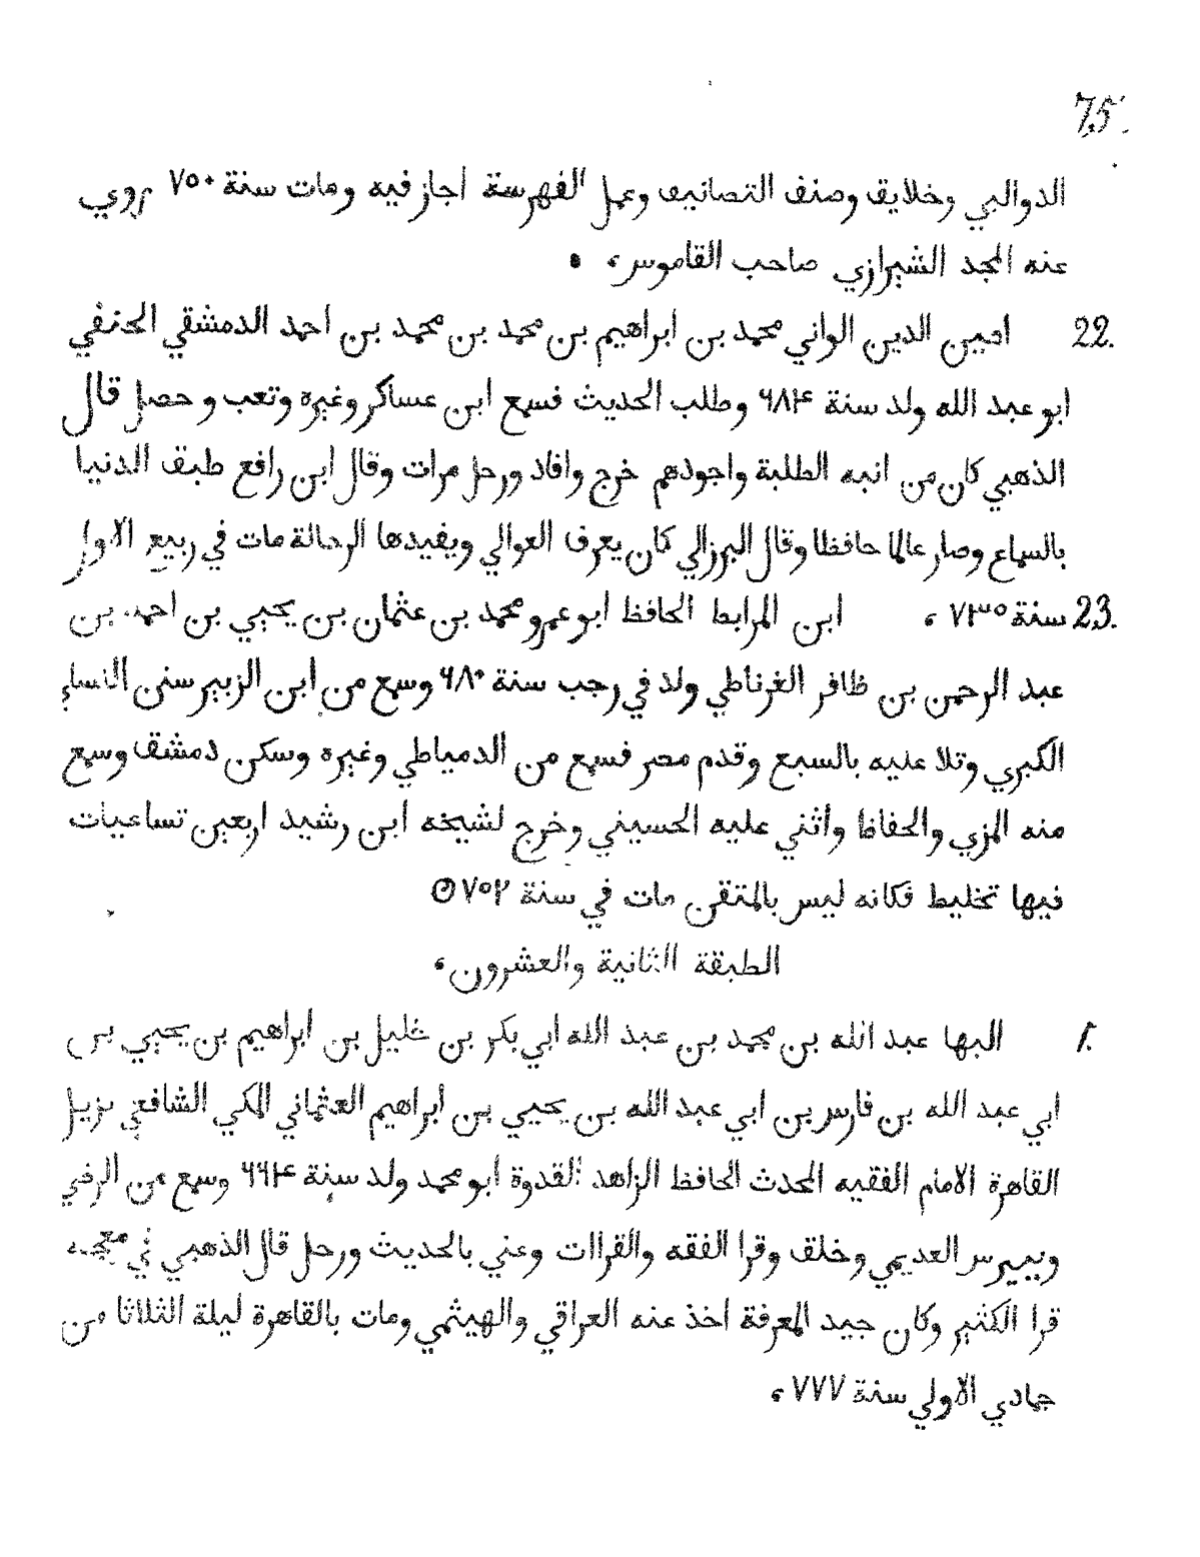 75.
الدواليبي وخلايق وصنف التصانيف وعمل الفهرسة اجاز فيه ومات سنة ٧٥٠ روي
عنه المجد الشيرازي صاحب القاموس،
22. امين الدين الواني محمد بن ابراهيم بن محمد بن محمد بن احمد الدمشقي الحنفي
ابو عبد الله ولد سنة ٦٨٤ وطلب الحديث فسمع ابن عساكر وغيره وتعب و حصل قال
الذهبي كان من انبه الطلبة واجودهم خرج وافاد ورحل مرات وقال ابن رافع طبق الدنيا
بالسماع وصار عالما حافظا وقال البرزالي كان يعرف العوالي ويفيدها الرحالة مات في ربيع الاول
سنة ٧٣٥، 23. ابن المرابط الحافظ ابو عمرو محمد بن عثمان بن يحيي بن احمد بن
عبد الرحمن بن ظافر الغرناطي ولد في رجب سنة ٦٨٠ وسمع من ابن الزبير سنن النساي
الكبري وتلا عليه بالسبع وقدم مصر فسمع من الدمياطي وغيره وسكن دمشق وسمع
منه المزي والحفاظ واثني عليه الحسيني وخرج لشيخه ابن رشيد اربعين تساعيات
فيها تخليط فكانه ليس بالمتقن مات في سنة ٧٥٢
الطبقة الثانية والعشرون،
1. البها عبد الله بن محمد بن عبد الله ابي بكر بن خليل بن ابراهيم بن يحيي بن
ابي عبد الله بن فارس بن ابي عبد الله بن يحيي بن ابراهيم العثماني المكي الشافعي نزيل
القاهرة الامام الفقيه المحدث الحافظ الزاهد القدوة ابو محمد ولد سنة ٦٦٤ وسمع من الرضي
وبيبرس العديمي وخلق وقرا الفقه والقراات وعني بالحديث ورحل قال الذهبي في معجمه
قرا الكثير وكان جيد المعرفة اخذ عنه العراقي والهيثمي ومات بالقاهرة ليلة الثلاثا من
جمادي الاولي سنة ٧٧٧،